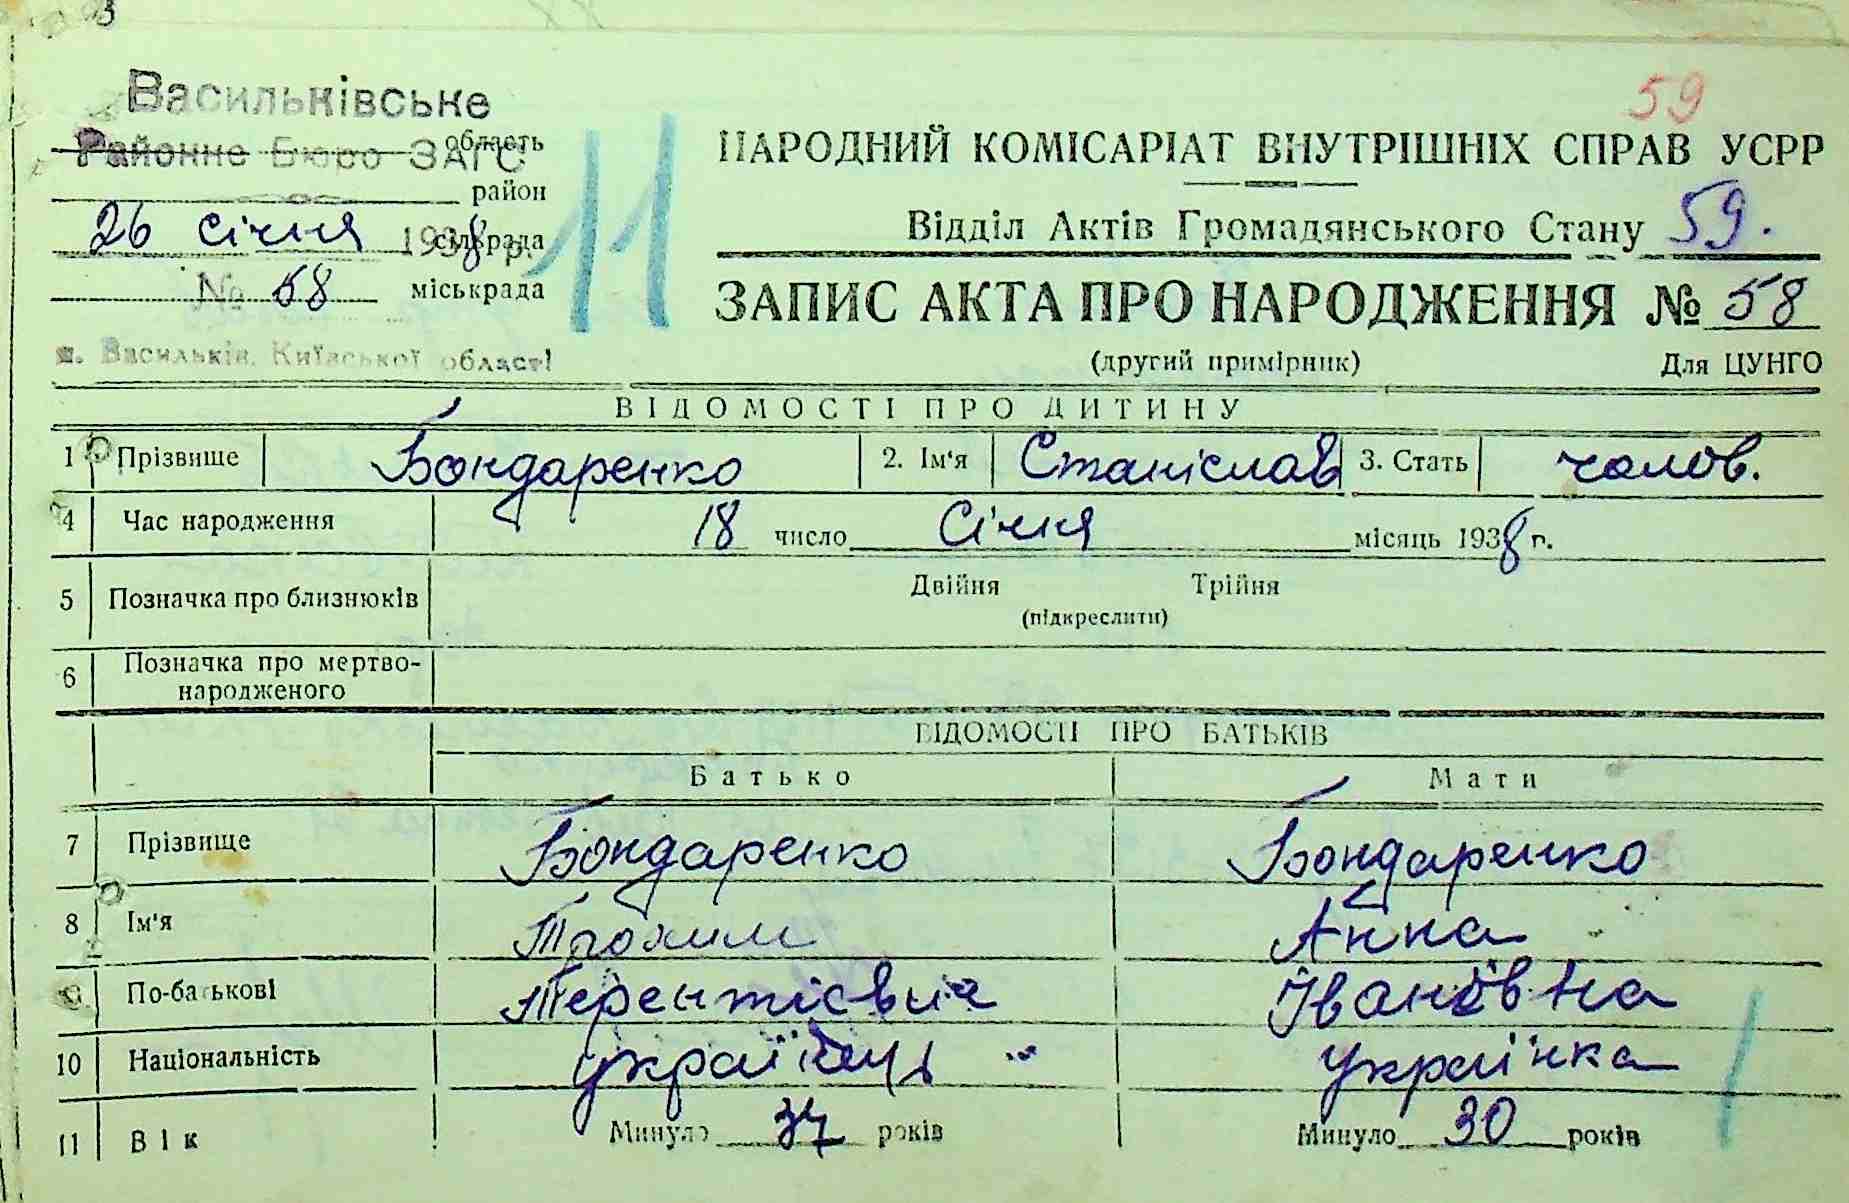 59
Васильківське
Районне Бюро ЗАГС
область
район
26 січня 1938 р.
сільрада
№ 58
міськрада
м. Васильків, Київської області
11
НАРОДНИЙ КОМІСАРІАТ ВНУТРІШНІХ СПРАВ УСРР
Відділ Актів Громадянського Стану 59.
ЗАПИС АКТА ПРО НАРОДЖЕННЯ № 58
(другий примірник) Для ЦУНГО
ВІДОМОСТІ ПРО ДИТИНУ
1 Прізвище Бондаренко 2. Ім'я Станіслав 3. Стать чолов.
4 Час народження 18 число Січня місяць 1938 р.
5 Позначка про близнюків Двійня Трійня
(підкреслити)
6 Позначка про мертво-
народженого
ВІДОМОСТІ ПРО БАТЬКІВ
Батько Мати
7 Прізвище Бондаренко Бондаренко
8 Ім'я Трохим Анна
9 По-батькові Терентієвич Івановна
10 Національність українець українка
11 Вік Минуло 37 років Минуло 30 років